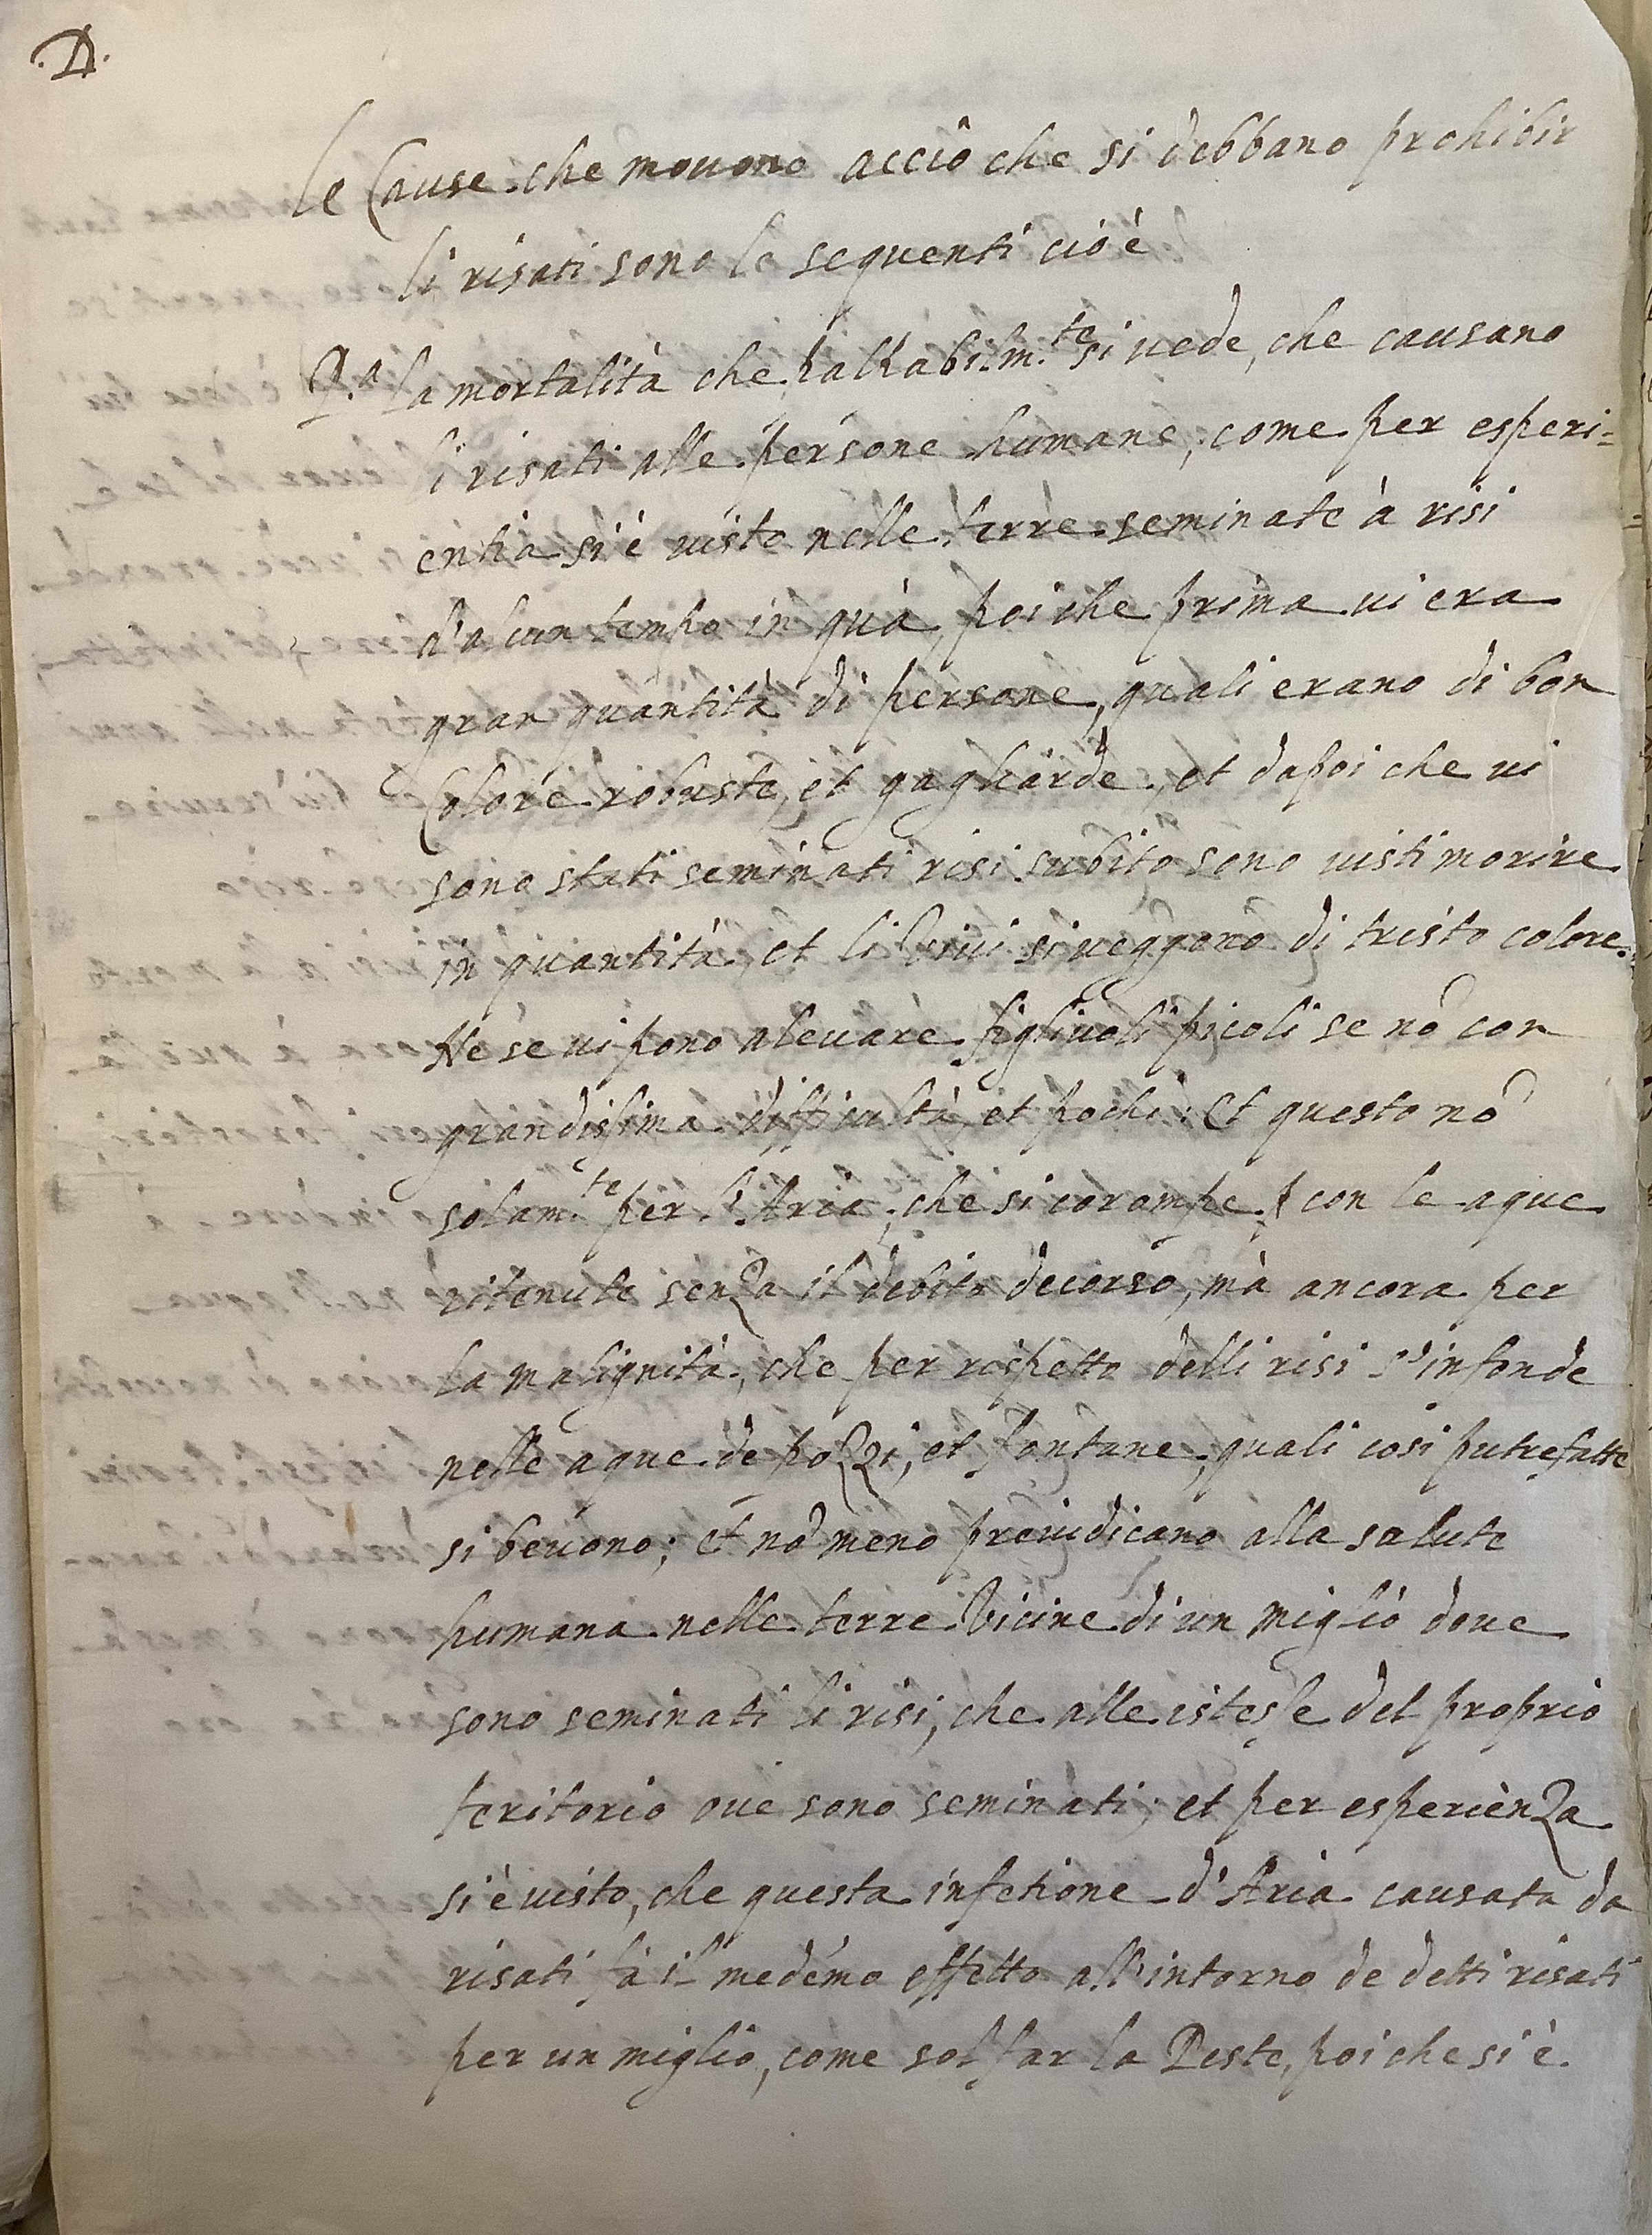 .D.
le Cause che mouono acciò che si debbano prohibir
li risati sono le sequenti cio è
P.a la mortalità che si uede, che causano
li risati alle persone humane, come per esperi=
entia si è uisto nelle terre seminate à risi
d'alcun tempo in quà, poi che prima ui era
gran quantità di persone, quali erano di bon
Colore robuste, et gagliarde, et dapoi che ui
sono stati seminati risi subito sono uisti morire
in quantità, et li Viui si ueggono di tristo colore.
Ne se ui pono aleuare figliuoli picoli se nõ con
grandissima difficultà, et pochi: Et questo nõ
solam.te per l'Aria, che si corompe con le aque
ritenute senza il debito decorso, mà ancora per
la malignità, che per rispetto delli risi s'infonde
nelle aque de pozzi, et fontane, quali cosi putrefatte
si beuono; et nõ meno preiudicano alla salute
humana nelle terre Vicine di un miglio doue
sono seminati li risi, che alle istesse del proprio
teritorio oue sono seminati; et per esperienza
si è uisto, che questa infetione d'Aria causata da
risati fà il medémo effetto all'intorno de detti risati
per un miglio, come sol far la Peste, poi che si è